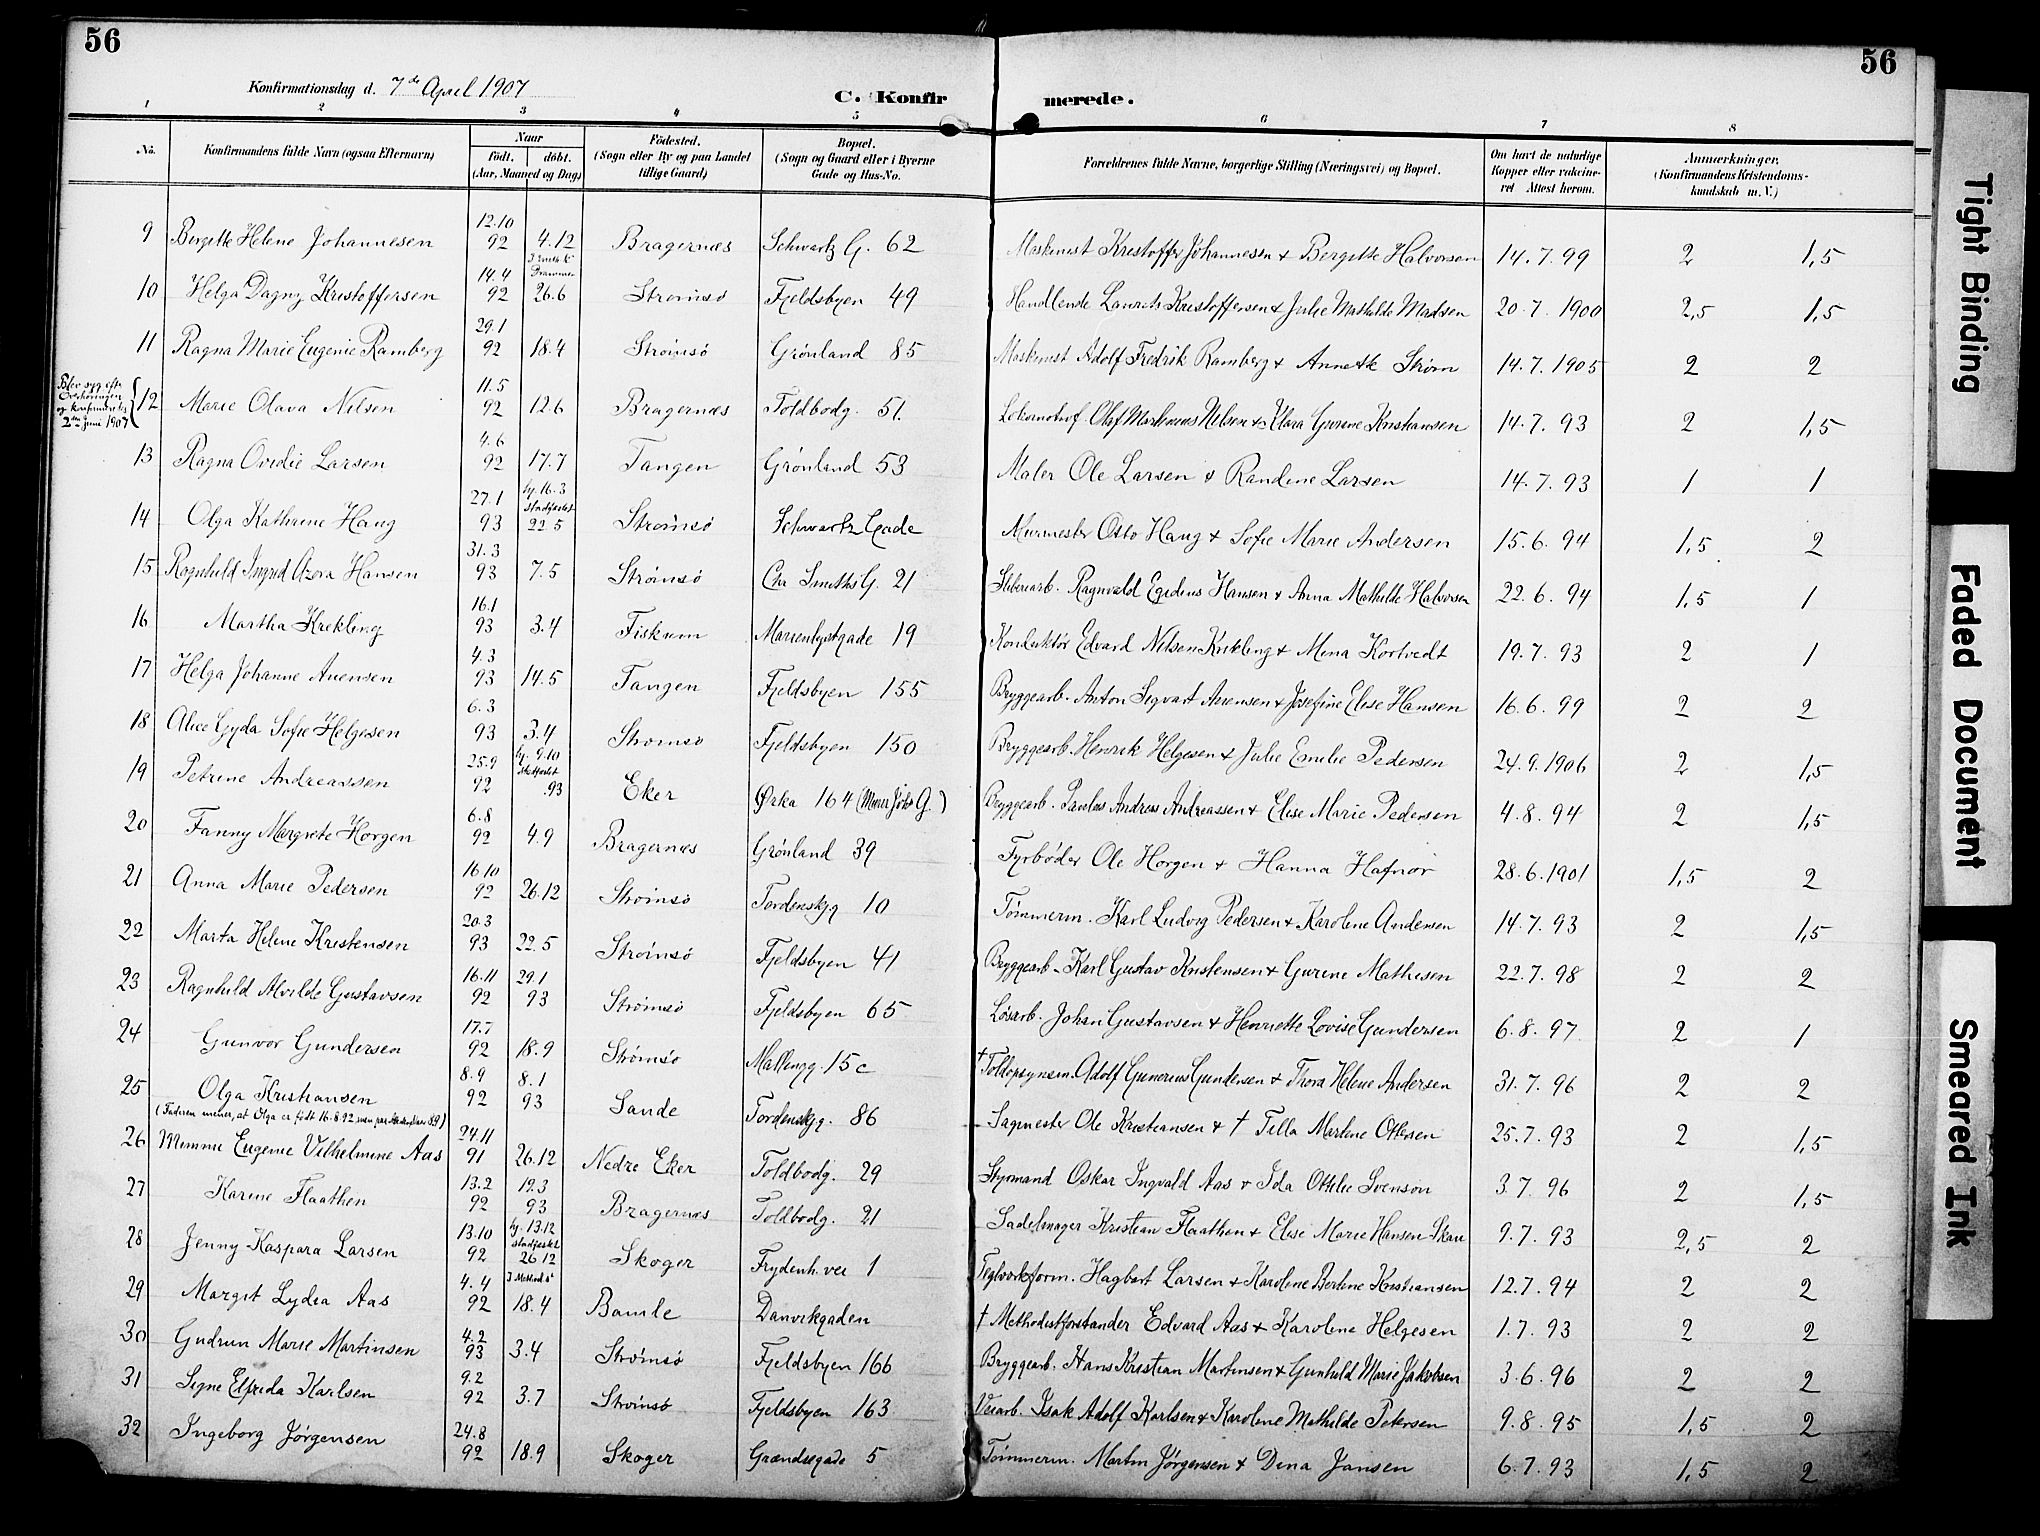 56
56
Konfirmationsdag d. 7de April 1907
C. Konfirmerede.
1 2 3 4 5 6 7 8
No.
Konfirmandens fulde Navn (ogsaa Efternavn)
Naar
født. døbt.
(Aar, Maaned og Dag)
Fødested.
(Sogn eller By og paa Landet
tillige Gaard)
Bopæl.
(Sogn og Gaard eller i Byerne
Gade og Hus-No.
Forældrenes fulde Navne, borgerlige Stilling (Næringsvei) og Bopæl.
Om havt de naturlige
Kopper eller vakcine-
ret Attest herom.
Anmærkninger.
(Konfirmandens Kristendoms-
kundskab m. V.)
9 Bergitte Helene Johannesen 12.10 92 4.12 Bragernæs Schwartz G. 62 Maskinist Kristoffer Johannesen + Bergitte Halvorsen 14.7.99 2 1,5
10 Helga Dagny Kristoffersen 14.4 92 Drammen 26.6 Strømsø Fjeldsbyen 49 Handlende Laurits Kristoffersen + Julie Mathilde Madsen 20.7.1900 2,5 1,5
11 Ragna Marie Eugenie Ramberg 29.1 92 18.4 Strømsø Grønland 85 Maskinist Adolf Fredrik Ramberg + Annette Strøm 14.7.1905 2 2
Blev syg efter
Overhøringen
og konfirmertes
2den juni 1907
12 Marie Olava Nilsen 11.5 92 12.6 Bragernæs Toldbodg. 51. Lokomotivf Olaf Martinius Nilsen + Klara Gurine Kristiansen 14.7.93 2 1,5
13 Ragna Ovidie Larsen 4.6 92 17.7 Tangen Grønland 53 Maler Ole Larsen + Randine Larsen 14.7.93 1 1
14 Olga Kathrine Haug 27.1 93 hj. 16.3 stadfæstet 22.5 Strømsø Schwartz Gade Murmester Otto Haug + Sofie Marie Andersen 15.6.94 1,5 2
15 Ragnhild Ingrid Azora Hansen 31.3 93 7.5 Strømsø Chr Smiths G. 21 Sliberiarb. Ragnvald Egidius Hansen + Anna Mathilde Halvorsen 22.6.94 1,5 1
16 Martha Krekling 16.1 93 3.4 Fiskum Marienlystgade 19 Konduktør Edvard Nilsen Krekling + Mina Kortvedt 19.7.93 2 1
17 Helga Johanne Auensen 4.3 93 14.5 Tangen Fjeldsbyen 155 Bryggearb. Anton Sigvart Auensen + Josefine Elise Hansen 16.6.99 2 2
18 Alice Gyda Sofie Helgesen 6.3 93 3.4 Strømsø Fjeldsbyen 150 Bryggearb. Henrik Helgesen + Julie Emilie Pedersen 24.9.1906 2 1,5
19 Petrine Andreassen 25.9 92 hj. 9.10 .93 Eker Ørka 164 Bryggearb. Paulus Andreas Andreassen + Elise Marie Pedersen 4.8.94 2 1,5
20 Fanny Margrete Horgen 6.8 92 4.9 Bragernæs Grønland 39 Fyrbøder Ole Horgen + Hanna Hafnor 28.6.1901 1,5 2
21 Anna Marie Pedersen 16 10 92 26.12 Strømsø Tordenskj.g 10 Tømmerm. Karl Ludvig Pedersen + Karoline Andersen 14.7.93 2 1,5
22 Marta Helene Kristensen 20.3 93 22.5 Strømsø Fjeldsbyen 41 Bryggearb. Karl Gustav Kristensen + Gurine Mathisen 22.7.98 2 2
23 Ragnhild Alvilde Gustavsen 16.11 92 29.1 93 Strømsø Fjeldsbyen 65 Løsarb. Johan Gustavsen + Henriette Lovise Gundersen 6.8.97 2 1
24 Gunvor Gundersen 17.7 92 18.9 Strømsø Mallingg. 15c † Toldopsynsm. Adolf Gunerius Gundersen + Thora Helene Andersen 31.7.96 2 2
25 Olga Kristiansen 8.9 92 8.1 93 Sande Tordenskj.g. 86 Sagmester Ole Kristiansen + † Tilla Martine Ottersen 25.7.93 2 1,5
(Faderen mener, at Olga er født 16.8.92
26 Mimmi Eugenie Vilhelmine Aas 24.11 91 26.12 Nedre Eker Toldbodg. 29 Styrmand Oskar Ingvald Aas + Ida Ottilie Svenson 3.7.96 2 1,5
27 Karine Flaathen 13.2 92 12.3 93 Bragernæs Toldbodg. 21 Sadelmager Kristian Flaathen + Elise Marie Hansen Skau 9.7.93 2,5 2
28 Jenny Kaspara Larsen 13.10 92 hj. 13.12 stadfæstet 26 12 Skoger Frydenh. vei 1 Teglværksform. Hagbart Larsen + Karoline Bertine Kristiansen 12.7.94 2 2
29 Margit Lydia Aas 4.4 92 18.4 Bamle Danvikgaden † Methodistforstander Edvard Aas + Karoline Helgesen 1.7.93 2 2
30 Gudrun Marie Martinsen 4.2 93 3.4 Strømsø Fjeldsbyen 166 Bryggearb. Hans Kristian Martinsen + Gunhild Marie Jakobsen 3.6.96 2 2
31 Signe Elfrida Karlsen 9.2 92 3.7 Strømsø Fjeldsbyen 163 Veiarb. Isak Adolf Karlsen + Karoline Mathilde Petersen 9.8.95 1,5 2
32 Ingeborg Jørgensen 24.8 92 18.9 Skoger Grændsegade 5 Tømmerm. Martin Jørgensen + Dina Jansen 6.7.93 1,5 2
Tight Binding
Faded Document
Smeared Ink